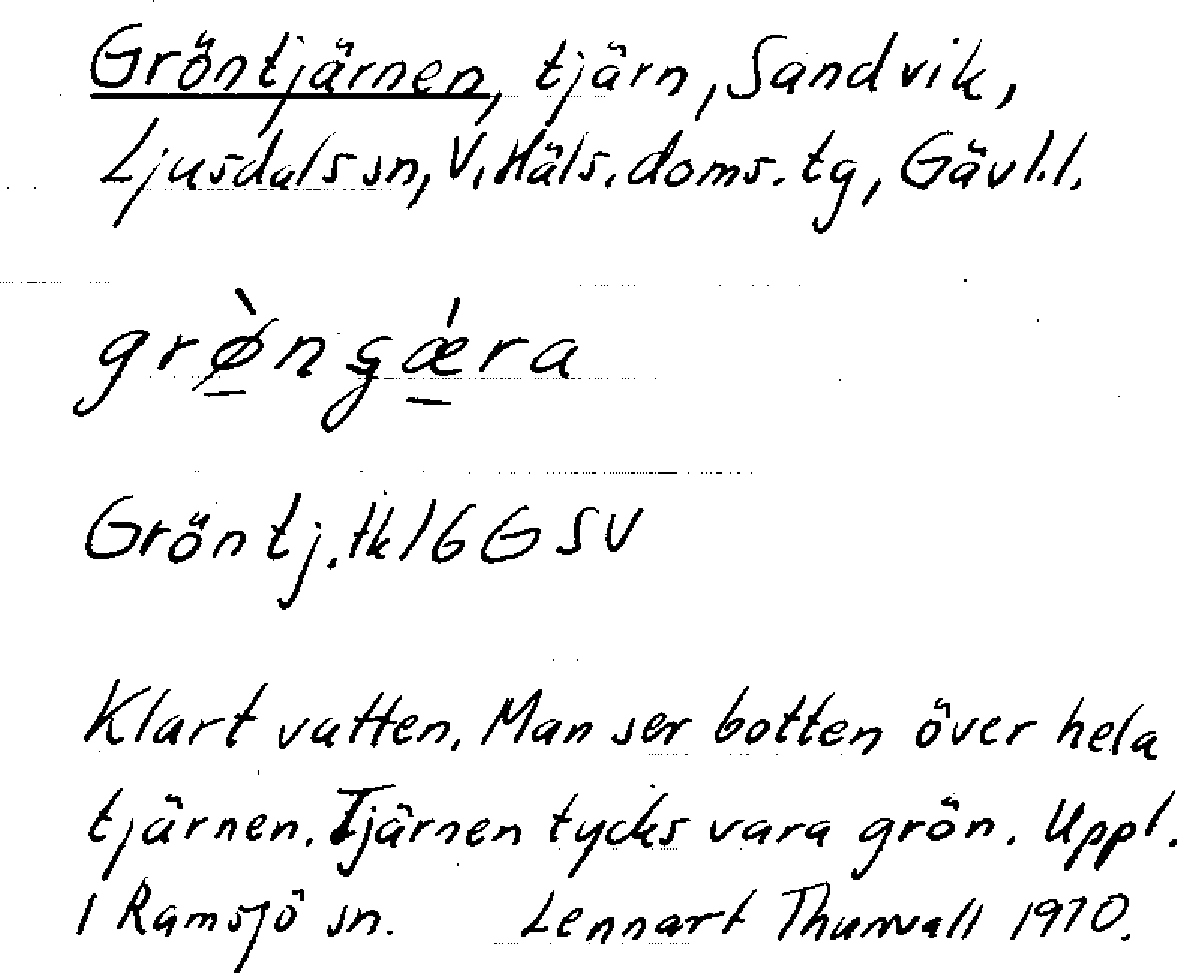 Gröntjärnen, tjärn, Sandvik,
Ljusdals sn, V. Häls. doms. tg, Gävl. l.
grø̠̀nɕǽ̠ra
Gröntj. tk 16 G SV
Klart vatten. Man ser botten över hela
tjärnen. Tjärnen tycks vara grön. Uppl.
i Ramsjö sn. Lennart Thunvall 1970.